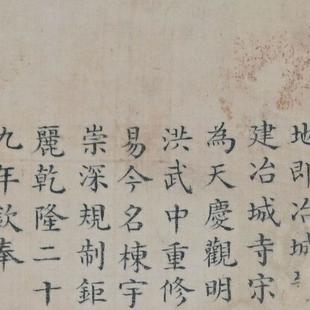 地即冶城
建冶城寺宋
為天慶觀明
洪武中重修
易今名棟宇
崇深規制鉅
麗乾隆二十
九年欽奉